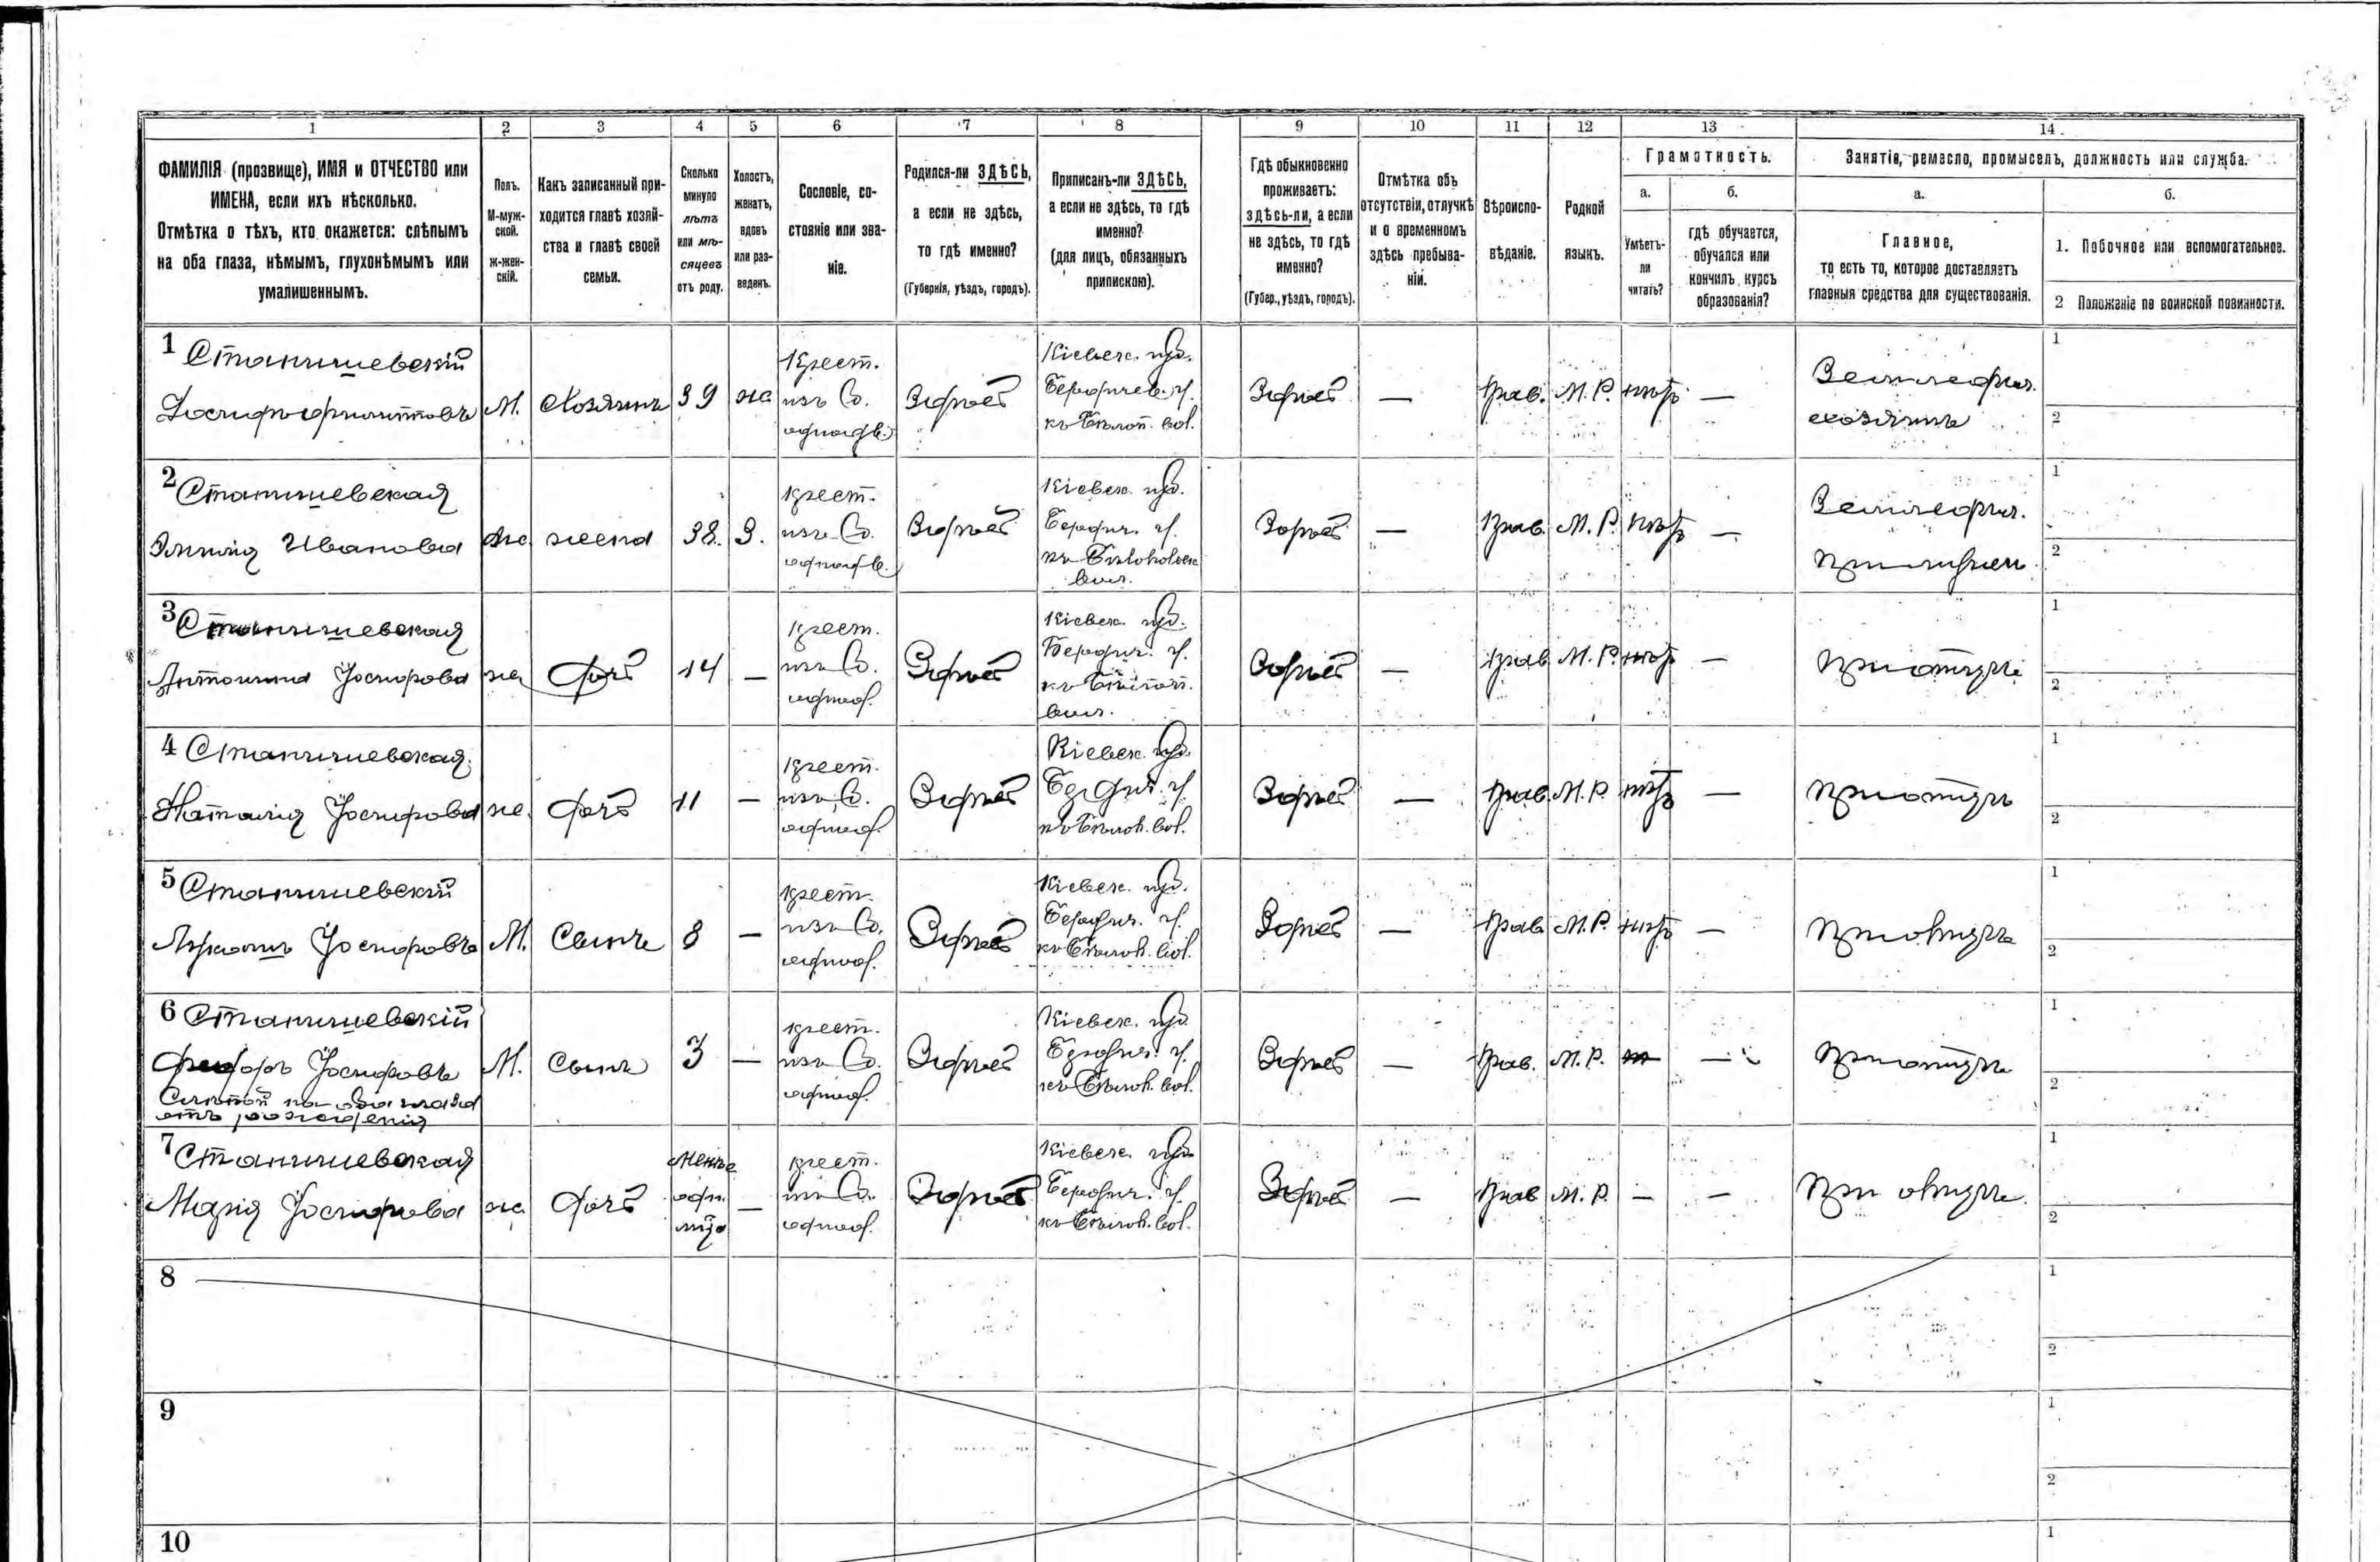 1 2 3 4 5 6 7 8 9 10 11 12 13 14
ФАМИЛІЯ (прозвище), ИМЯ и ОТЧЕСТВО или
ИМЕНА, если ихъ нѣсколько.
Отмѣтка о тѣхъ, кто окажется: слѣпымъ
на оба глаза, нѣмымъ, глухонѣмымъ или
умалишеннымъ.
Полъ.
М-муж-
ской.
ж-жен-
скій.
Какъ записанный при-
ходится главѣ хозяй-
ства и главѣ своей
семьи.
Сколько
минуло
лѣтъ
или мѣ-
сяцевъ
отъ роду.
Холостъ,
женатъ,
вдовъ
или раз-
веденъ.
Сословіе, со-
стояніе или зва-
ніе.
Родился-ли ЗДѢСЬ,
а если не здѣсь,
то гдѣ именно?
(Губернія, уѣздъ, городъ).
Приписанъ-ли ЗДѢСЬ,
а если не здѣсь, то гдѣ
именно?
(для лицъ, обязанныхъ
припискою).
Гдѣ обыкновенно
проживаетъ:
здѣсь-ли, а если
не здѣсь, то гдѣ
именно?
(Губер., уѣздъ, городъ).
Отмѣтка объ
отсутствіи, отлучкѣ
и о временномъ
здѣсь пребыва-
ніи.
Вѣроиспо-
вѣданіе.
Родной
языкъ.
Грамотность.
а.
Умѣетъ-
ли
читать?
б.
гдѣ обучается,
обучался или
кончилъ курсъ
образованія?
Занятіе, ремесло, промыселъ, должность или служба.
а.
Главное,
то есть то, которое доставляетъ
главныя средства для существованія.
б.
1. Побочное или вспомогательное.
2 Положеніе по воинской повинности.
1 Станишевскій
М. Хозяинъ 39 же
Крест.
изъ б.
однодв.
Здѣсь
Кіевск. губ.
Бердичев. у.
къ Бѣлоп. вол.
Здѣсь — Прав. М. Р. нѣтъ —
Земледѣл.
хозяинъ
1
2
2 Станишевская
Иванова же жена 38. З.
крест.
изъ б.
однодв.
Здѣсь
Кіевск. губ.
Бердич. у.
вол.
Здѣсь — Прав. М. Р. нѣтъ —
Земледѣл.
1
2
3 Станишевская
Антонина Іосифова же дочь 14 —
крест.
изъ б.
однод.
Здѣсь
Кіевск. губ.
Бердич. у.
вол.
Здѣсь — прав. М. Р. нѣтъ —
при отцѣ
1
2
4 Станишевская
Наталія Іосифова же. дочь 11 —
крест.
изъ б.
однод.
Здѣсь
Кіевск. губ.
Бердич. у.
вол.
Здѣсь — прав. М. Р. нѣтъ —
при отцѣ
1
2
5 Станишевскій
Іосифовъ М. Сынъ 8 —
крест.
изъ б.
однод.
Здѣсь
Кіевск. губ.
Бердич. у.
вол.
Здѣсь — прав. М. Р. нѣтъ —
при отцѣ
1
2
6 Станишевскій
Феодоръ Іосифовъ
Слѣпой на оба глаза
отъ рожденія
М. Сынъ 3 —
крест.
изъ б.
однод.
Здѣсь
Кіевск. губ.
Бердич. у.
вол.
Здѣсь — прав. М. Р. —
при отцѣ
1
2
7 Станишевская
Марія Іосифова же дочь
менѣе
одн.
года
—
крест.
изъ б.
однод.
Здѣсь
Кіевск. губ.
Бердич. у.
вол.
Здѣсь — прав М. Р. — —
при отцѣ
1
2
8
1
2
9
1
2
10
1